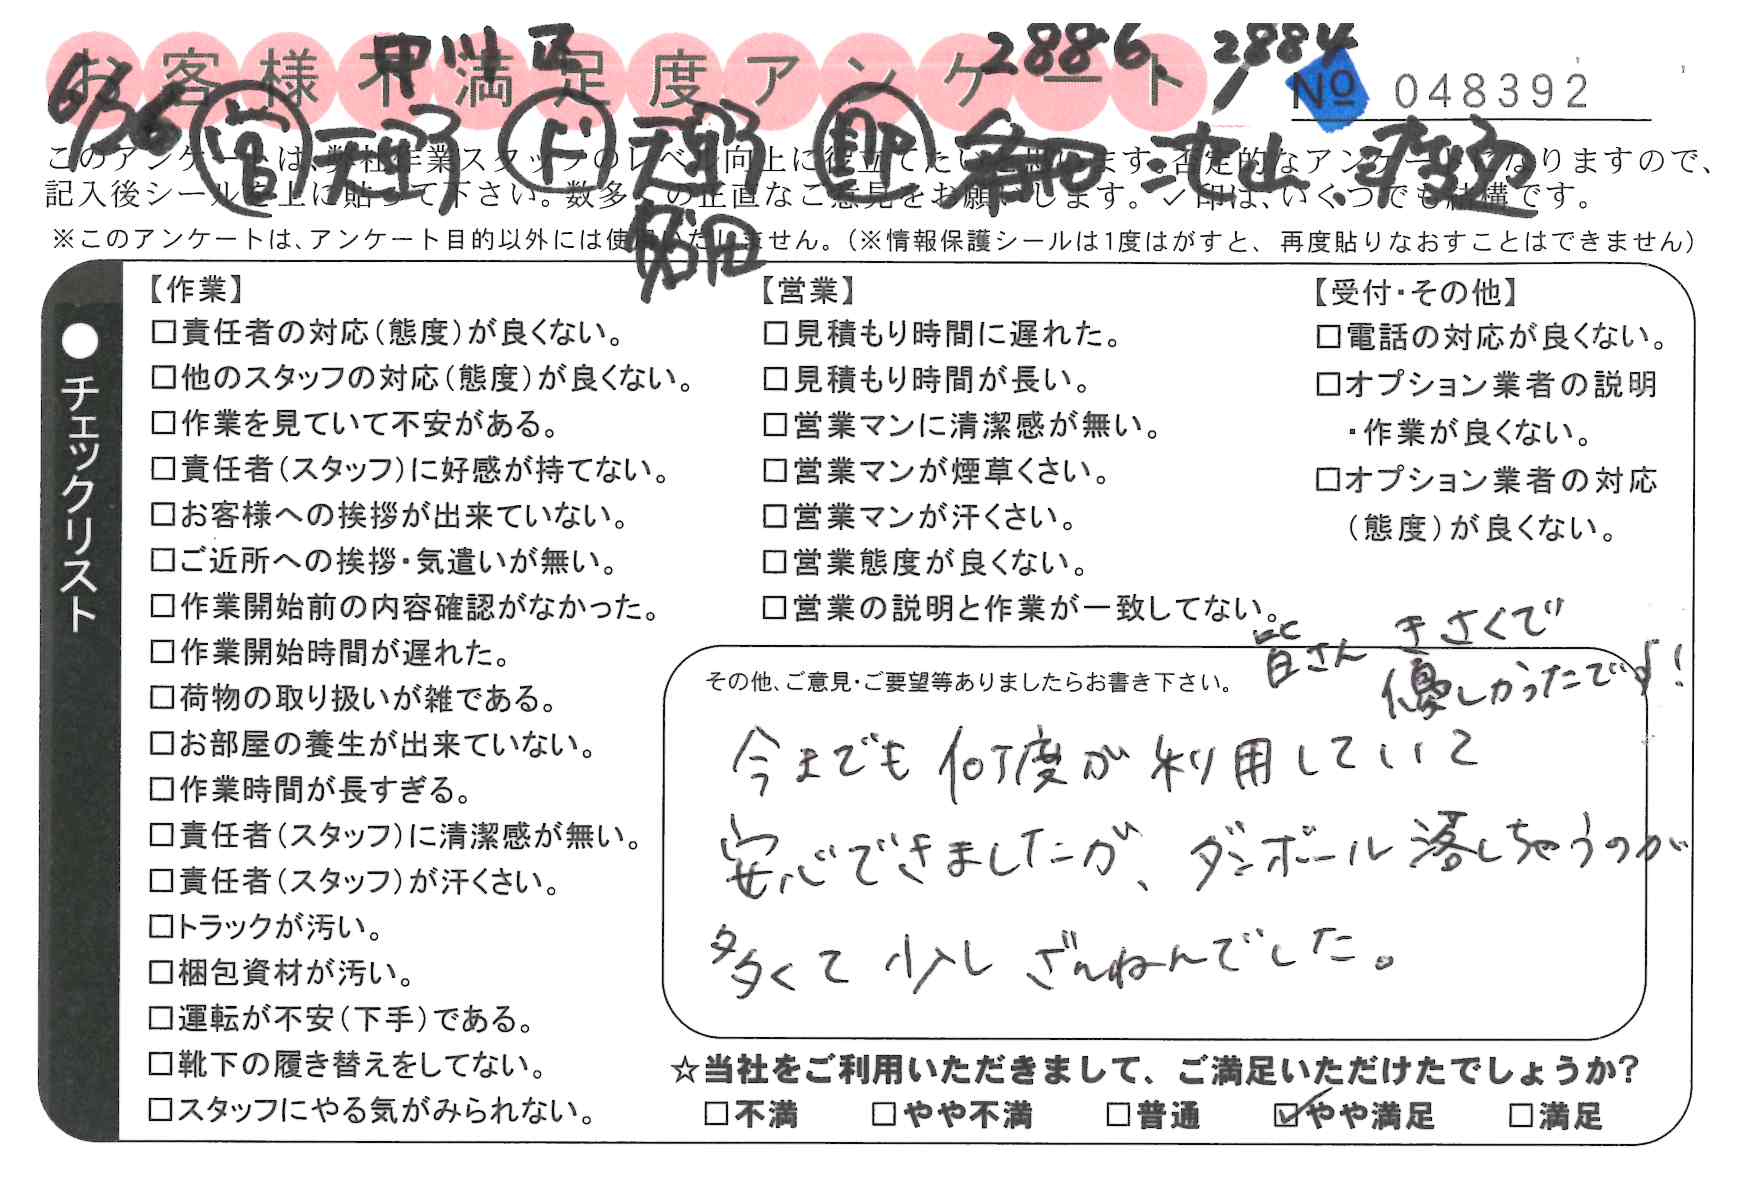 お客様不満足度アンケート
中川 正
2886、2884
№ 048392
6/26 営 天野 ド 天野 助 
池山、渡辺
このアンケートは、弊社作業スタッフのレベル向上に役立てたいと思います。否定的なアンケートになりますので、
記入後シールを上に貼って下さい。数多くの正直なご意見をお願いします。✓印は、いくつでも結構です。
※このアンケートは、アンケート目的以外には使用いたしません。(※情報保護シールは1度はがすと、再度貼りなおすことはできません)
●チェックリスト
【作業】
□責任者の対応(態度)が良くない。
□他のスタッフの対応(態度)が良くない。
□作業を見ていて不安がある。
□責任者(スタッフ)に好感が持てない。
□お客様への挨拶が出来ていない。
□ご近所への挨拶・気遣いが無い。
□作業開始前の内容確認がなかった。
□作業開始時間が遅れた。
□荷物の取り扱いが雑である。
□お部屋の養生が出来ていない。
□作業時間が長すぎる。
□責任者(スタッフ)に清潔感が無い。
□責任者(スタッフ)が汗くさい。
□トラックが汚い。
□梱包資材が汚い。
□運転が不安(下手)である。
□靴下の履き替えをしてない。
□スタッフにやる気がみられない。
【営業】
□見積もり時間に遅れた。
□見積もり時間が長い。
□営業マンに清潔感が無い。
□営業マンが煙草くさい。
□営業マンが汗くさい。
□営業態度が良くない。
□営業の説明と作業が一致してない。
【受付・その他】
□電話の対応が良くない。
□オプション業者の説明
・作業が良くない。
□オプション業者の対応
(態度)が良くない。
その他、ご意見・ご要望等ありましたらお書き下さい。
皆さん きさくで
優しかったです!
今までも何度か利用していて
安心できましたが、ダンボール落しちゃうのが
多くて少しざんねんでした。
☆当社をご利用いただきまして、ご満足いただけたでしょうか?
□不満 □やや不満 □普通 ☑やや満足 □満足